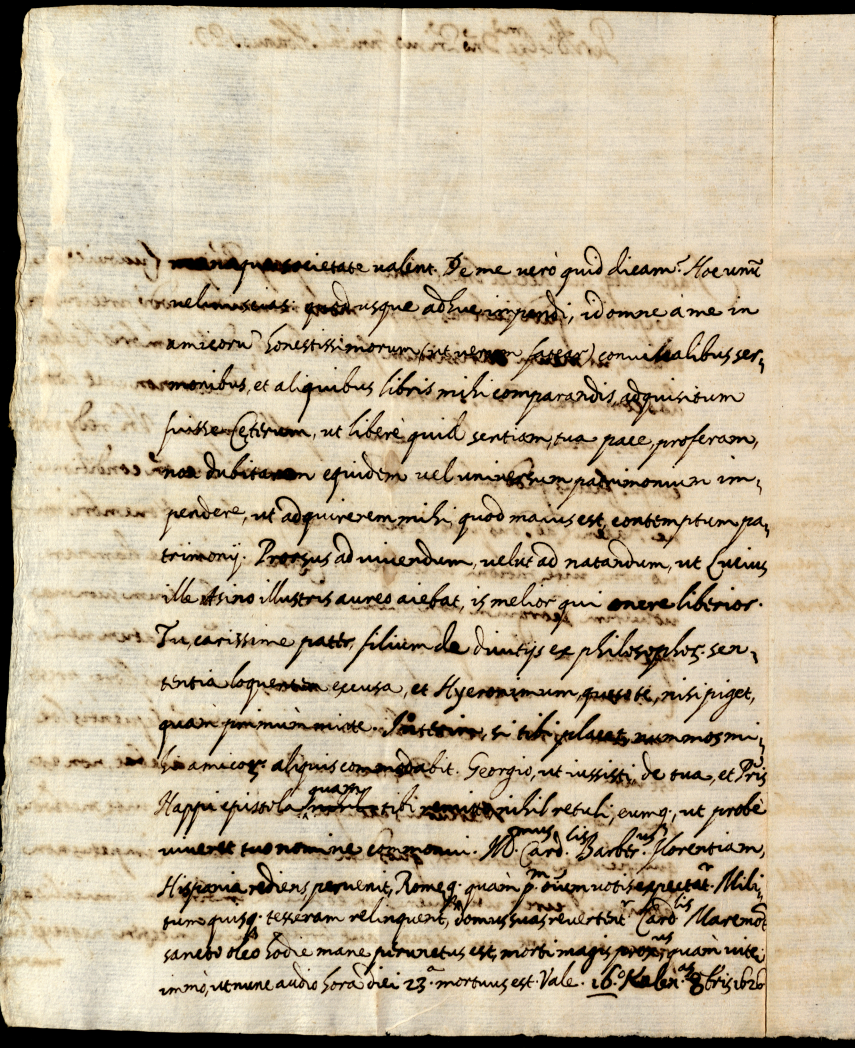 societate valent. De me verò quid dicam? Hoc unũ
velim scias: quod usque adhuc impendi, id omne à me in
amicorũ honestissimorum (ut verum fatear) convivalibus ser,
monibus, et aliquibus libris mihi comparandis, adquisitum
fuisse. Ceterum, ut liberè quid sentiam, tua pace, proferam,
non dubitarem equidem vel universum patrimonium im,
pendere, ut adquirerem mihi, quod maius est, contemptum pa,
trimonij. Prorsus ad vivendum, velut ad natandum, ut Lucius
ille Asino illustris aureo aiebat, is melior qui onere liberior.
Tu, carissime pater, filium de divitijs ex philosophor. sen,
tentia loquentem excusa, et Hyeronimum, queso te, nisi piget,
quàm primùm mitte. si tibi placet, nummos mi,
hi amicor. aliquis commodabit. Georgio, ut iussisti, de tua, et Pris
Happi epistola quam tibi remitto nihil retuli, eumq., ut probè
viveret tuo nomine commonui. Card.lis Barb.us Florentiam,
Hispania rediens pervenit, Romeq. quàm p.m votis expectat.r Mili,
tum quisq. tesseram relinquent, domus suas revertent.r Card.lis
sancto oleo hodie mane perunctus est, morti magis quàm vite
immò, ut nunc audio horâ diei 23.a mortuus est. Vale. 16.o Kalen.as 8bris 1626